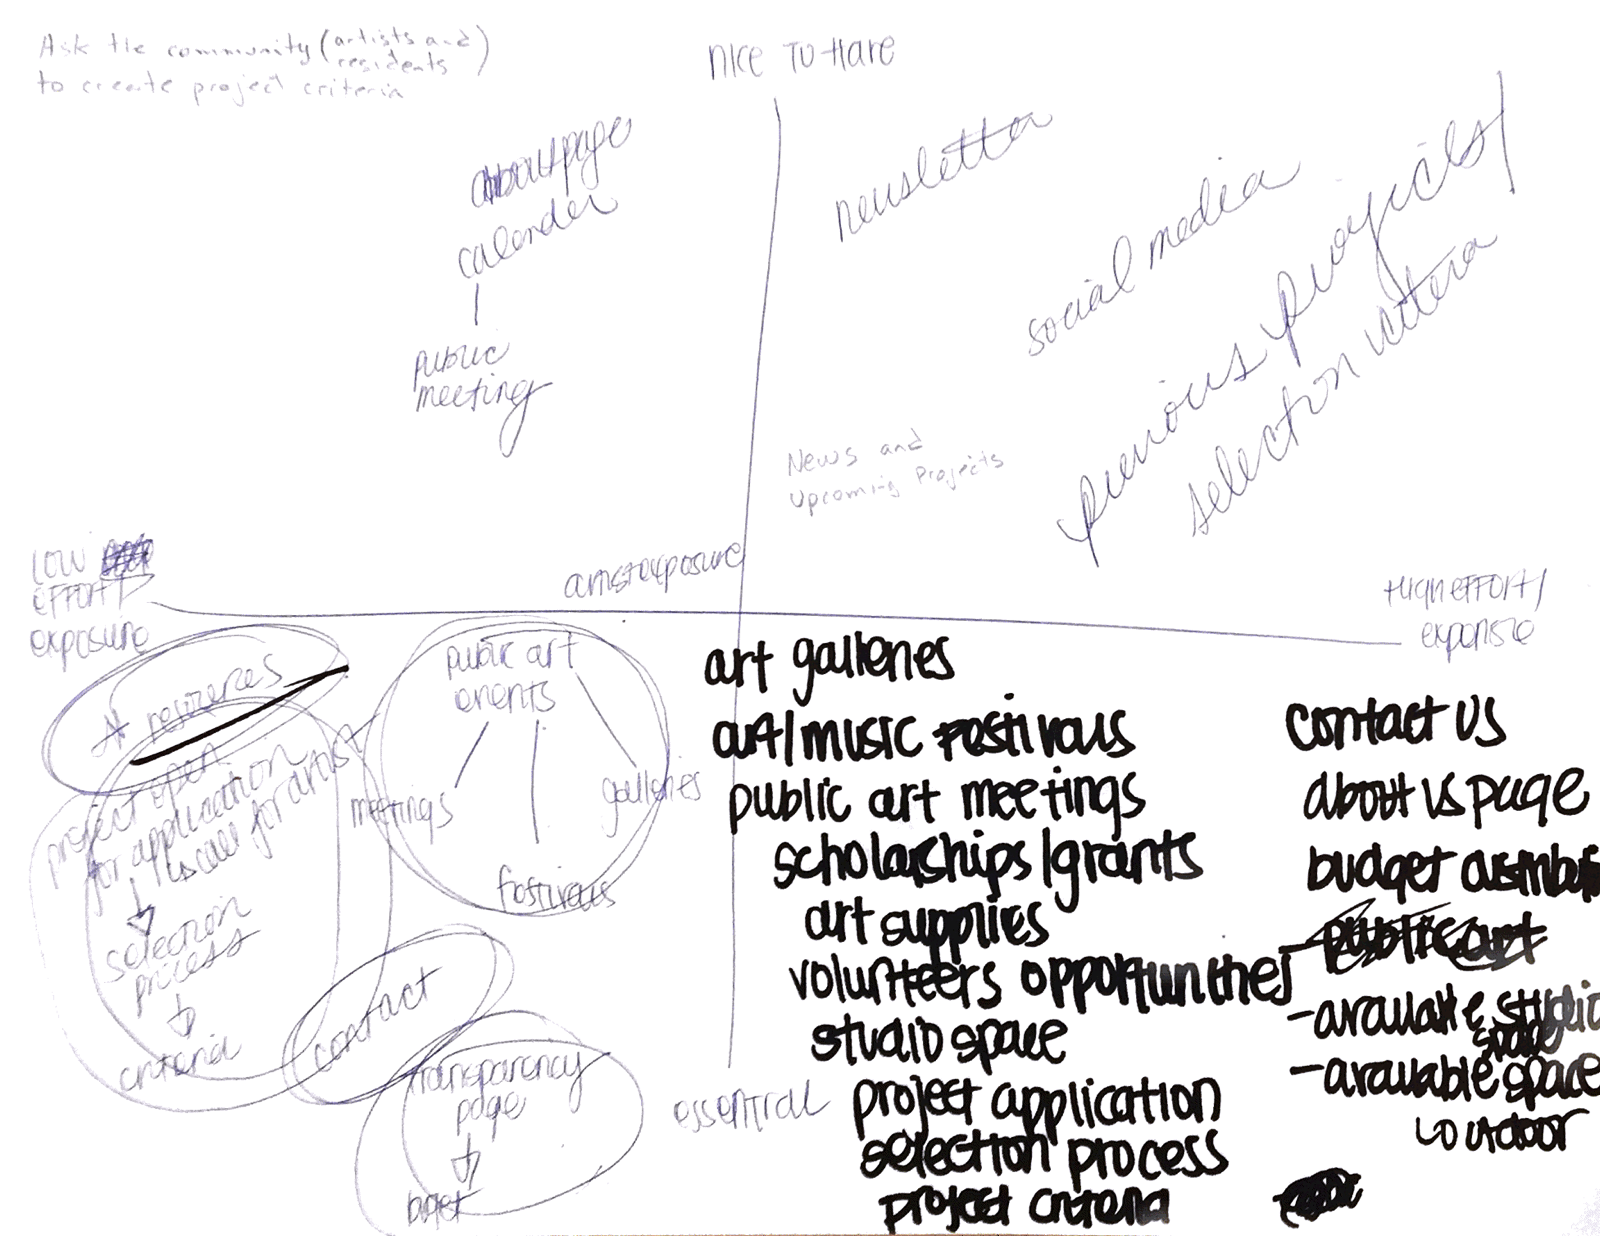 Ask the community (artists and residents)
to create project criteria
NICE TO HAVE
about page
calender
public
meeting
newsletter
social media
previous projects/
selection criteria
News and
Upcoming Projects
LOW
EFFORT/
exposure
artist exposure
HIGH EFFORT/
expensive
resources
project open
for application
call for artist
selection
process
criteria
public art
events
meetings
galleries
contact
transparency
page
essential
art galleries
art/music festivals
public art meetings
scholarships/grants
art supplies
volunteers opportunities
studio space
project application
selection process
project criteria
contact us
about us page
budget
- public art
- available studio
space
- available space
outdoor